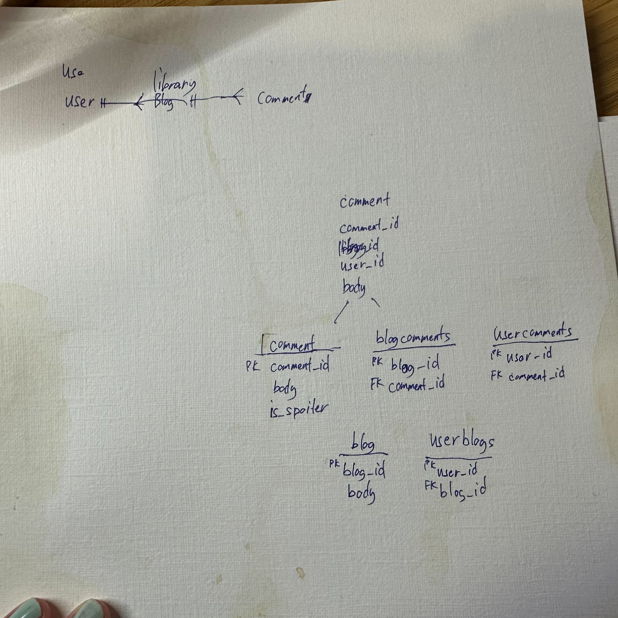 Use
library
user Blog comment
comment
comment_id
user_id
body
comment
PK comment_id
body
is_spoiler
blogcomments
PK blog_id
FK comment_id
usercomments
PK user_id
FK comment_id
blog
PK blog_id
body
userblogs
PK user_id
FK blog_id